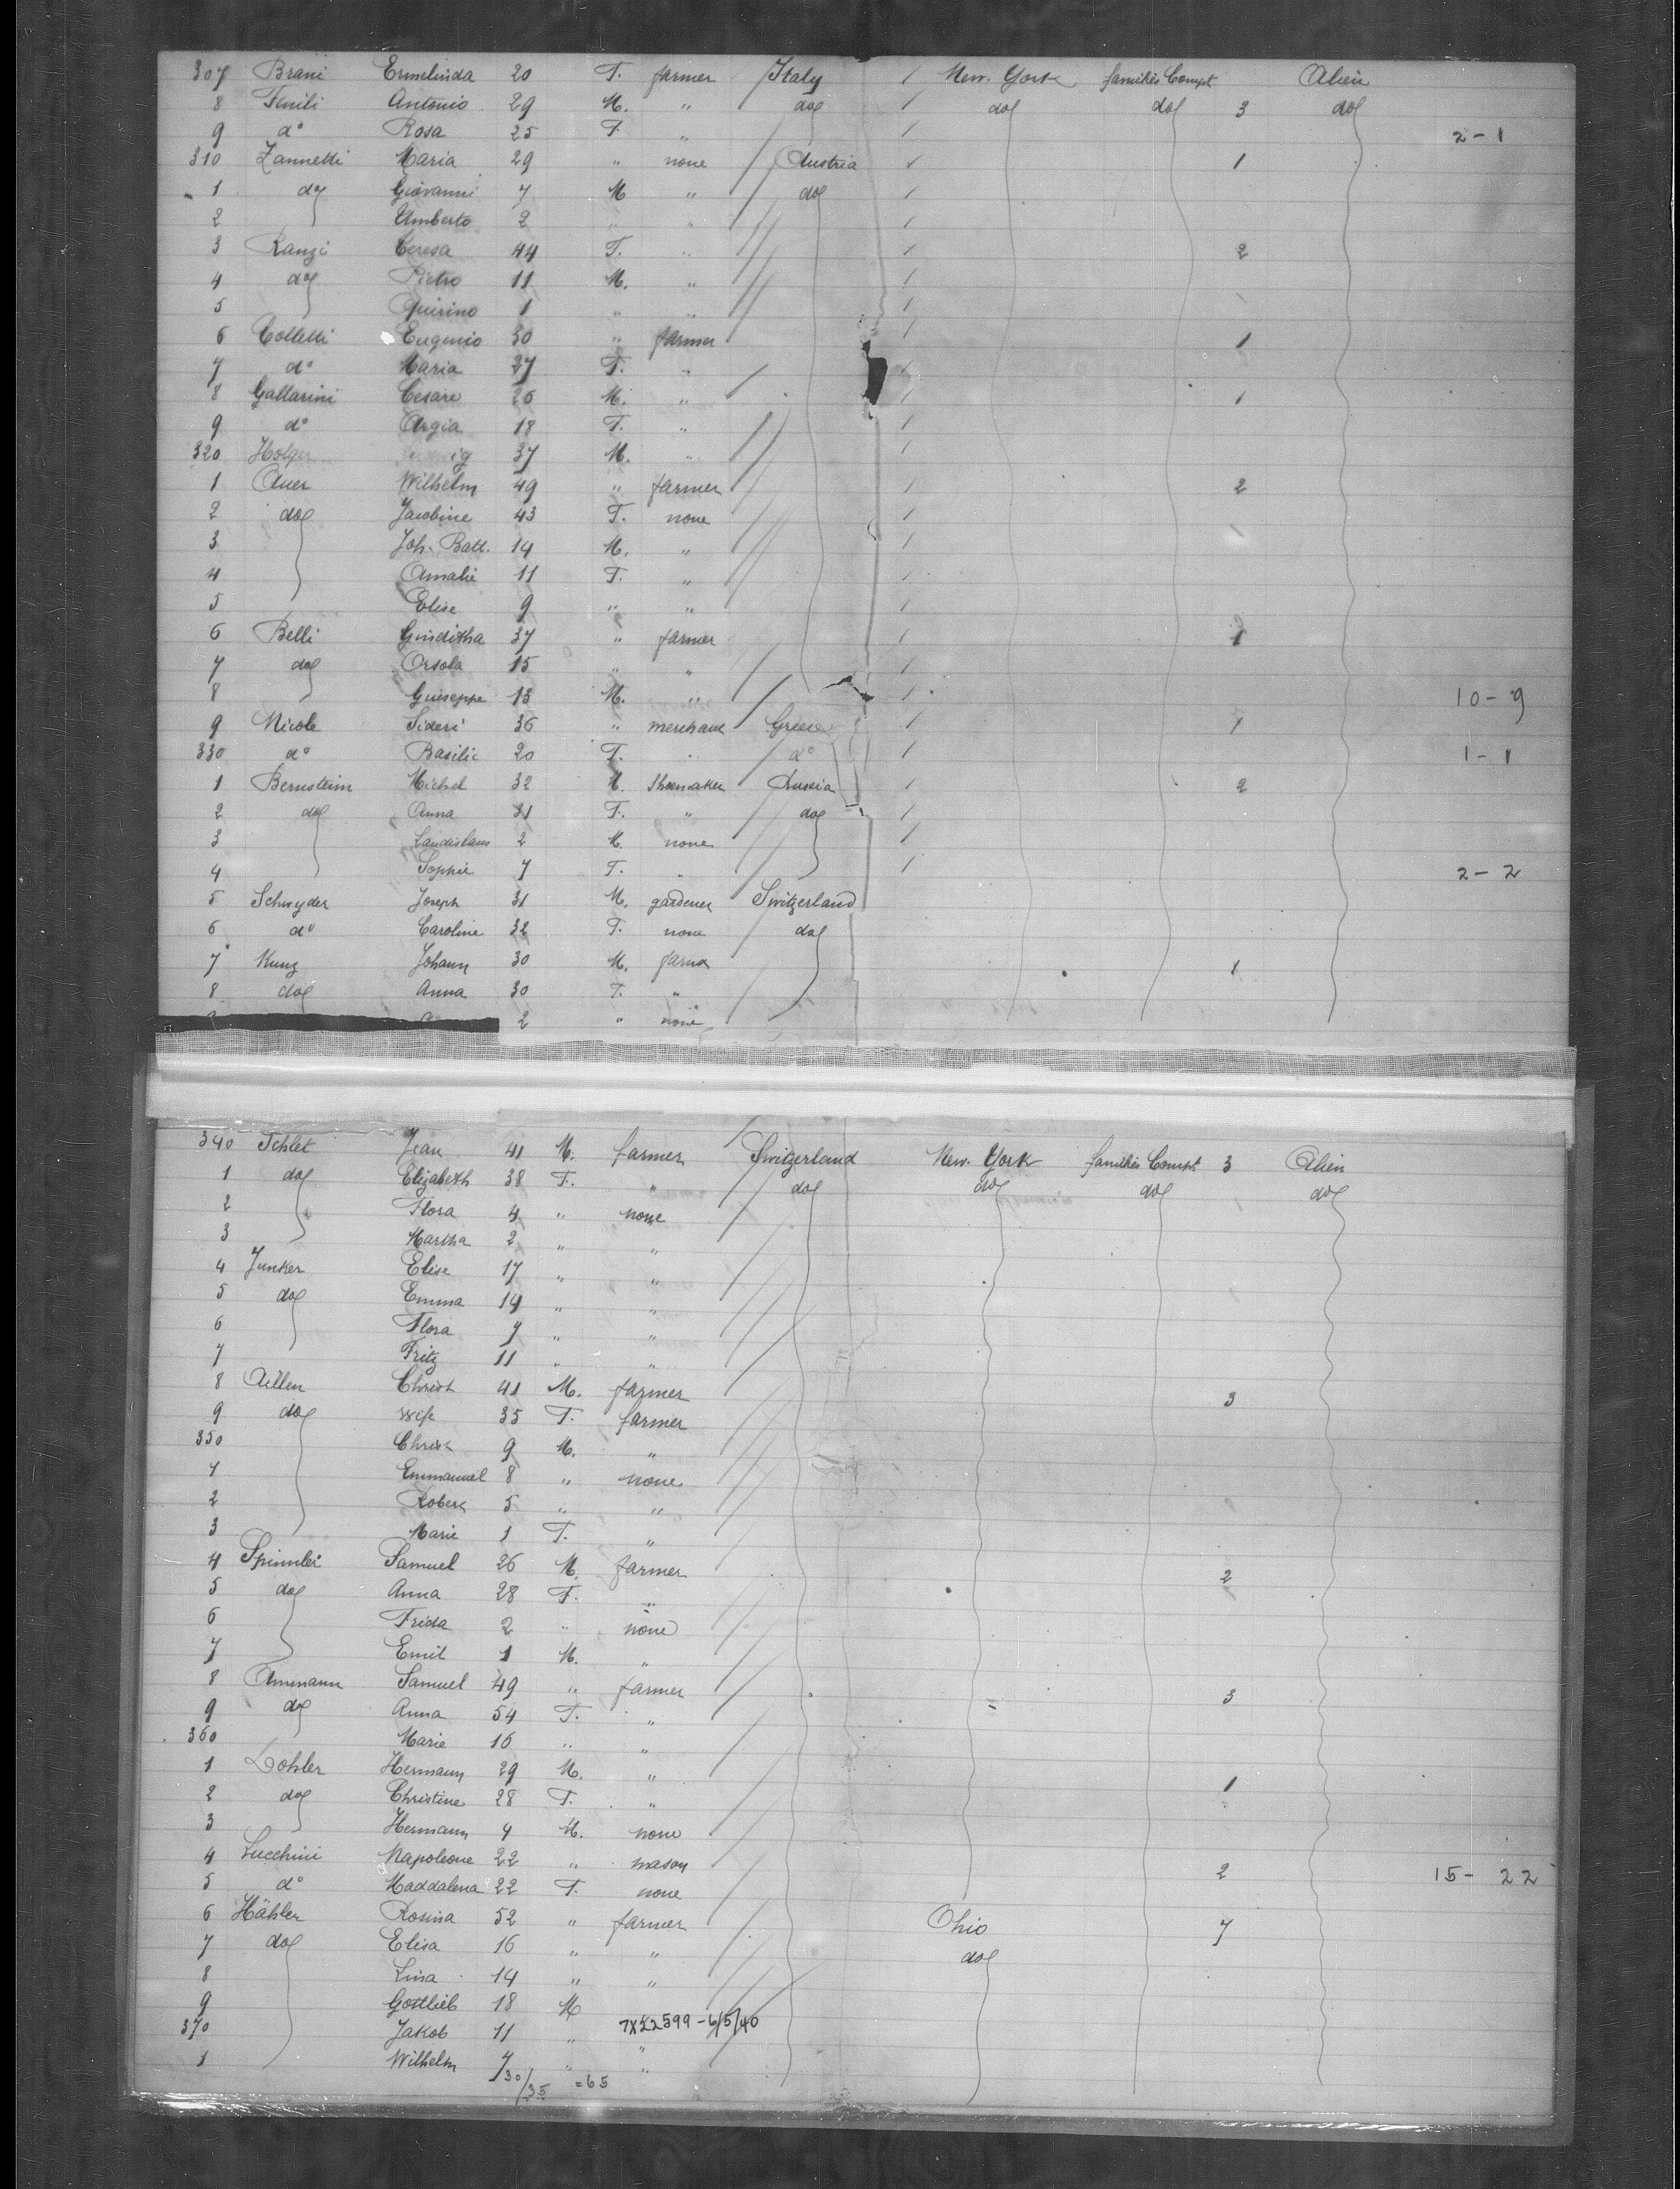 307 Brani Ermelinda 20 F. farmer Italy / New-York families Compt Alien
8 Fenili Antonio 29 M. " do / do do 3 do
9 do Rosa 25 F. " / 2-1
310 Zannetti Maria 29 " none Austria / 1
1 do Giovanni 7 M " do /
2 Umberto 2 " " /
3 Ranzi Teresa 44 F. " / 2
4 do Pietro 11 M. " /
5 Quirino 1 " " /
6 Colletti Eugenio 30 " farmer / 1
7 do Maria 27 F. " /
8 Gallarini Cesare 26 M. " / 1
9 do Argia 18 F. " /
320 Holger 37 M. " /
1 Auer Wilhelm 49 " farmer / 2
2 do Jacobine 43 F. none /
3 Joh. Batt. 14 M. " /
4 Amalie 11 F. " /
5 Elise 9 " " /
6 Belli Giuditha 37 " farmer / 1
7 do Orsola 15 " " /
8 Guiseppe 13 M. " / 10-9
9 Nicole Sideri 36 " merchant Greece / 1
330 do Basilic 20 F. " do / 1-1
1 Bernsteim Michel 32 M. Shoemaker Russia / 2
2 do Anna 31 F. " do /
3 Landislaus 2 M. none /
4 Sophie 7 F. " / 2-2
5 Schnyder Joseph 31 M. gardener Switzerland
6 do Caroline 32 F. none do
7 Kung Johann 30 M. farmer 1
8 do Anna 30 F. "
2 " none
340 Schlet Jean 41 M. farmer Switzerland New-York families Compt 3 Alien
1 do Elizabeth 38 F. " do do do do
2 Flora 4 " none
3 Martha 2 " "
4 Junker Elise 17 " "
5 do Emma 14 " "
6 Flora 7 " "
7 Fritz 11 " "
8 Aellen Christ 41 M. farmer 3
9 do wife 35 F. farmer
350 Christ 9 M. "
1 Emmanuel 8 " none
2 Robert 5 " "
3 Marie 1 F. "
4 Spinnler Samuel 26 M. farmer 2
5 do Anna 28 F. "
6 Frida 2 " none
7 Emil 1 M. "
8 Ammann Samuel 49 " farmer 3
9 do Anna 54 F. "
360 Marie 16 " "
1 Dohler Hermann 29 M. " 1
2 do Christine 28 F. "
3 Hermann 4 M. none
4 Lucchini Napoleone 22 " mason 2 15-22
5 do Maddalena 22 F. none
6 Hähler Rosina 52 " farmer Ohio 7
7 do Elisa 16 " " do
8 Lina 14 " "
9 Gottlieb 18 M
370 Jakob 11 " 7X22599-6/5/40 "
1 Wilhelm 7 " "
30/35 =65